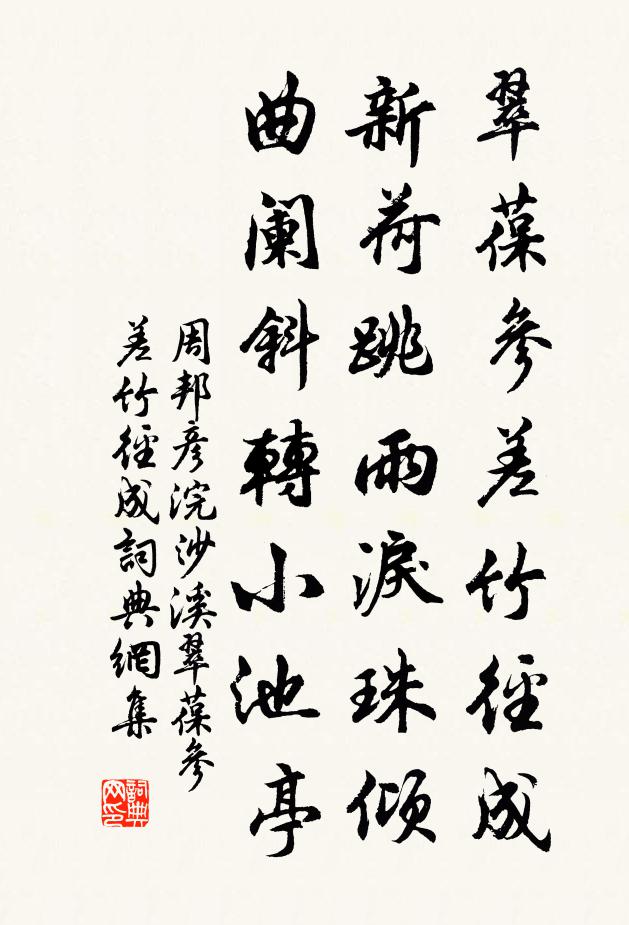 翠葆參差竹徑成
新荷跳雨淚珠傾
曲闌斜轉小池亭
周邦彥浣沙溪翠葆參
差竹徑成詞典網集
詞典
网印